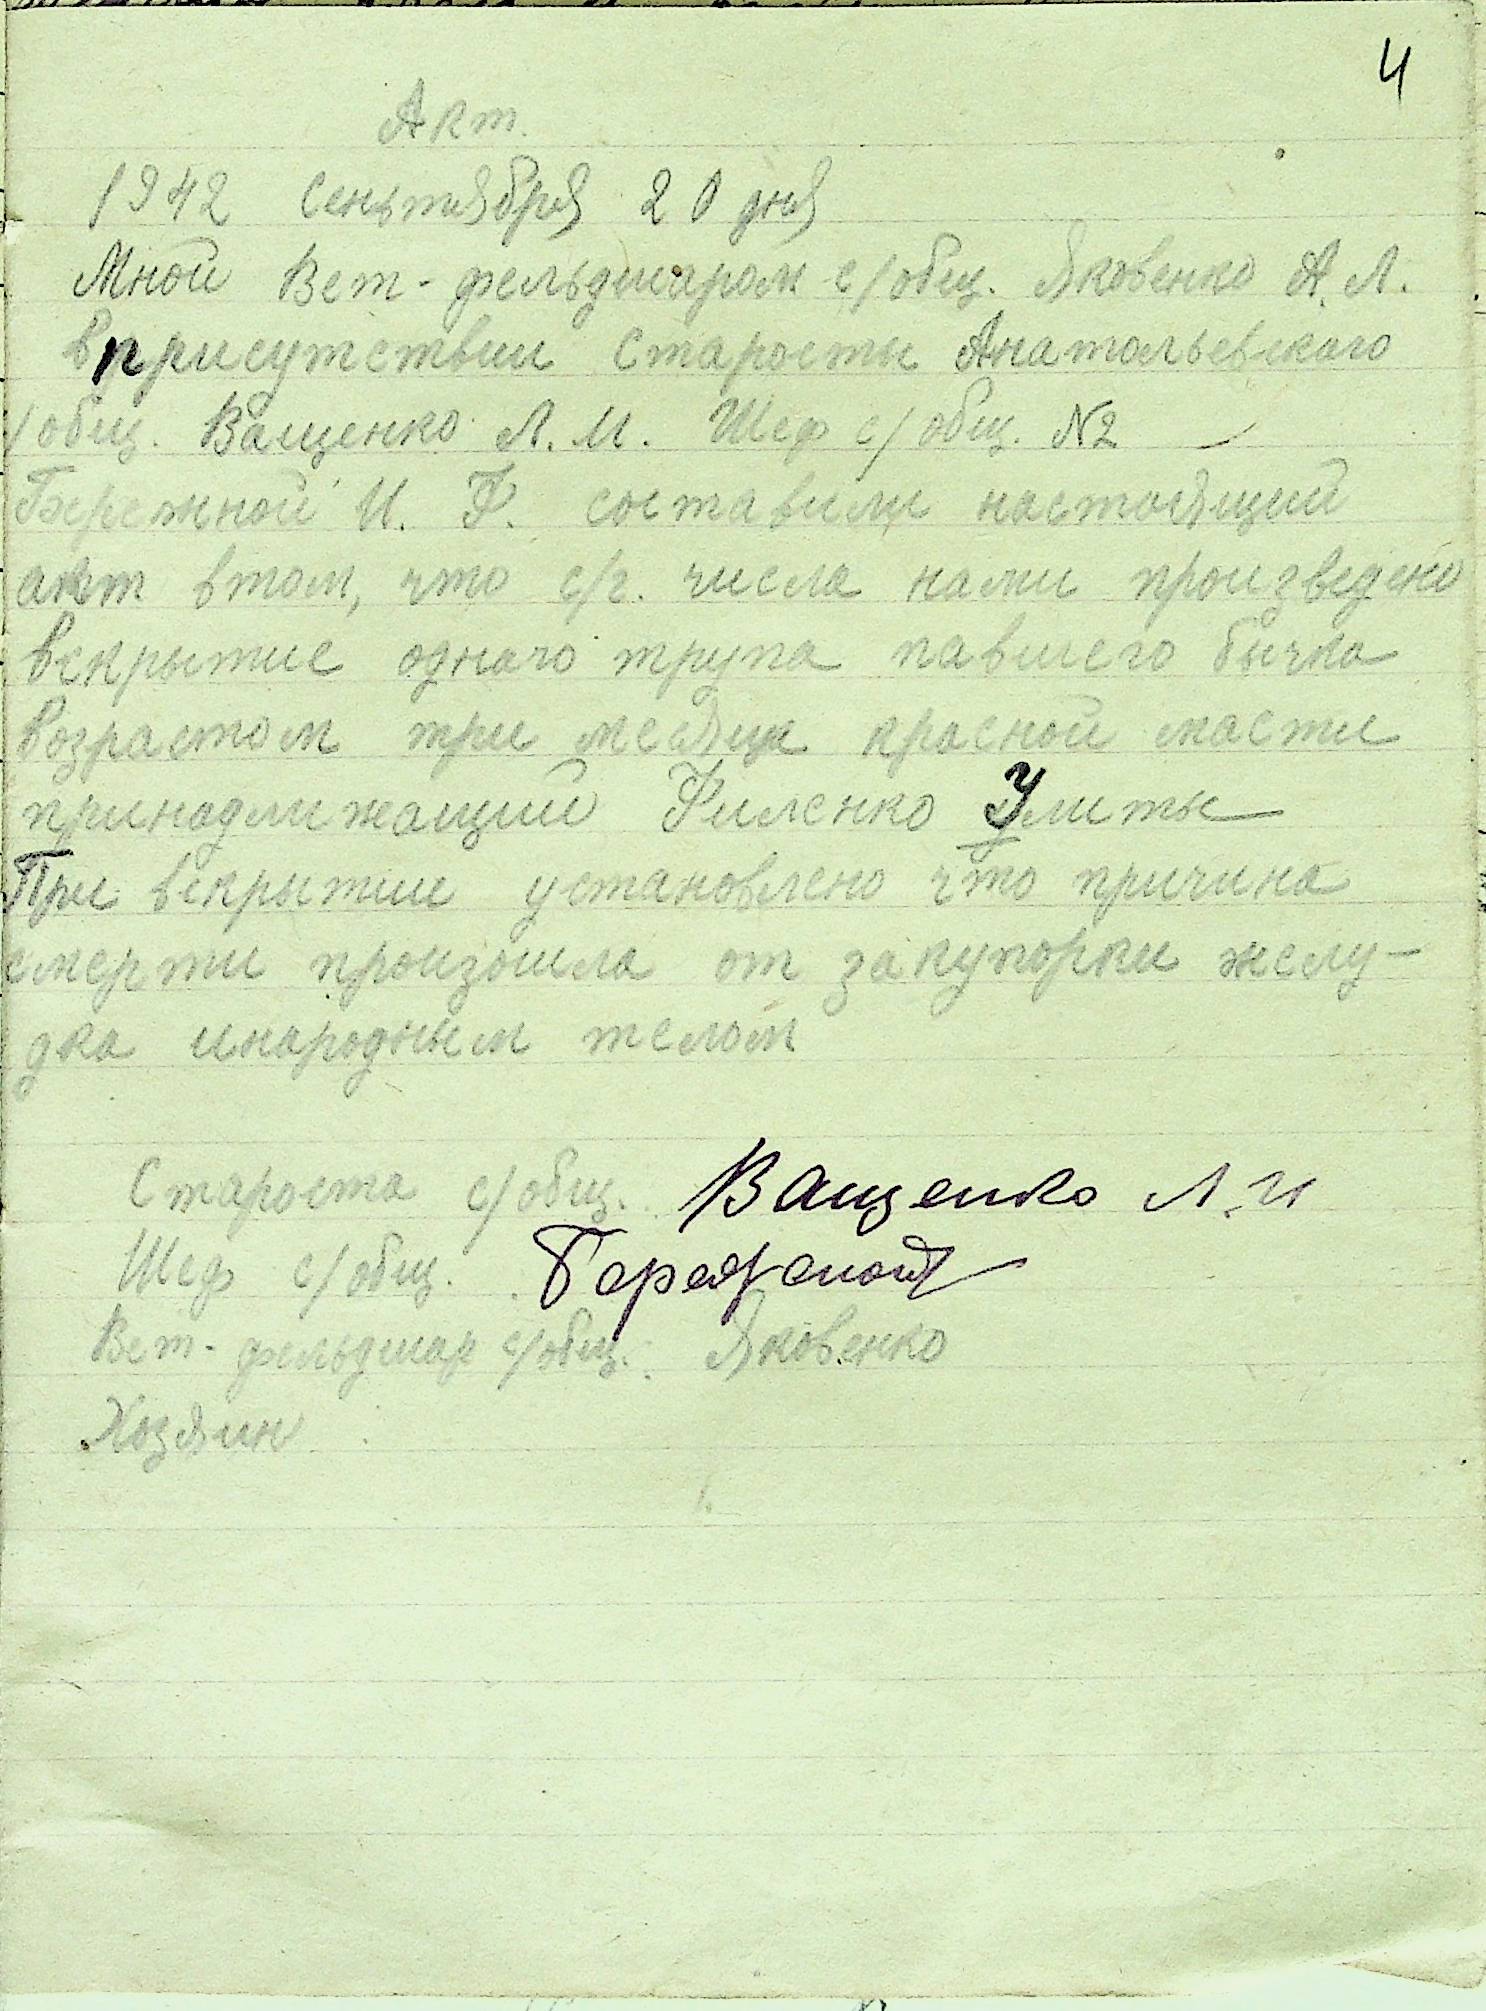 4
Акт.
1942 Сеньтября 20 дня
Мной Вет-фельдшаром с/общ. Яковенко А. Л.
в присутствии Старосты Анатольевского
с/общ. Ващенко Л. И. Шеф с/общ. N2
Бережной И. Ф. составили настоящий
акт втом, что с/г. числа нами произведено
вскрытие одного трупа павшего бычка
возрастом три месяца красной масти
принадлижащий Филенко Улиты
При вскрытии установлено что причина
смерти произошла от закупорки желу-
дка инародным телом
Староста с/общ. Ващенко Л. И
Шеф с/общ. Бережной
Вет-фельдшар с/общ. Яковенко
Хозяин